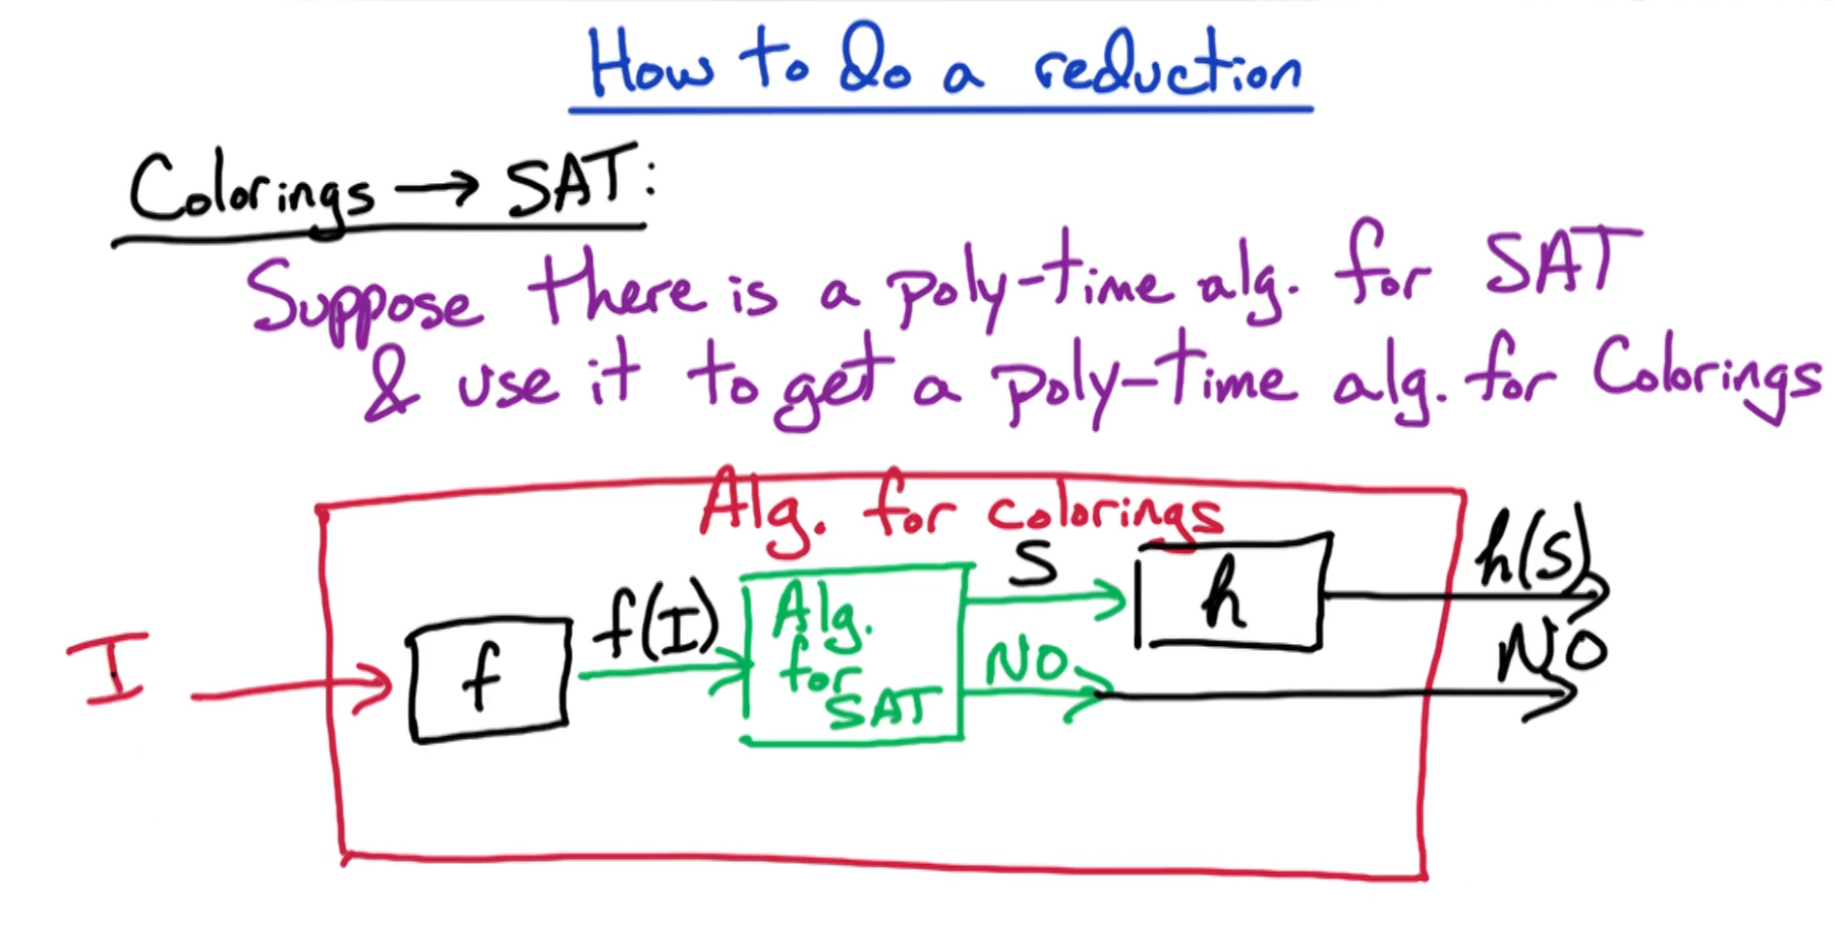 How to do a reduction
Colorings → SAT:
Suppose there is a poly-time alg. for SAT
& use it to get a poly-time alg. for Colorings
Alg. for colorings
I
f
f(I)
Alg.
for
SAT
S
NO
h
h(S)
NO